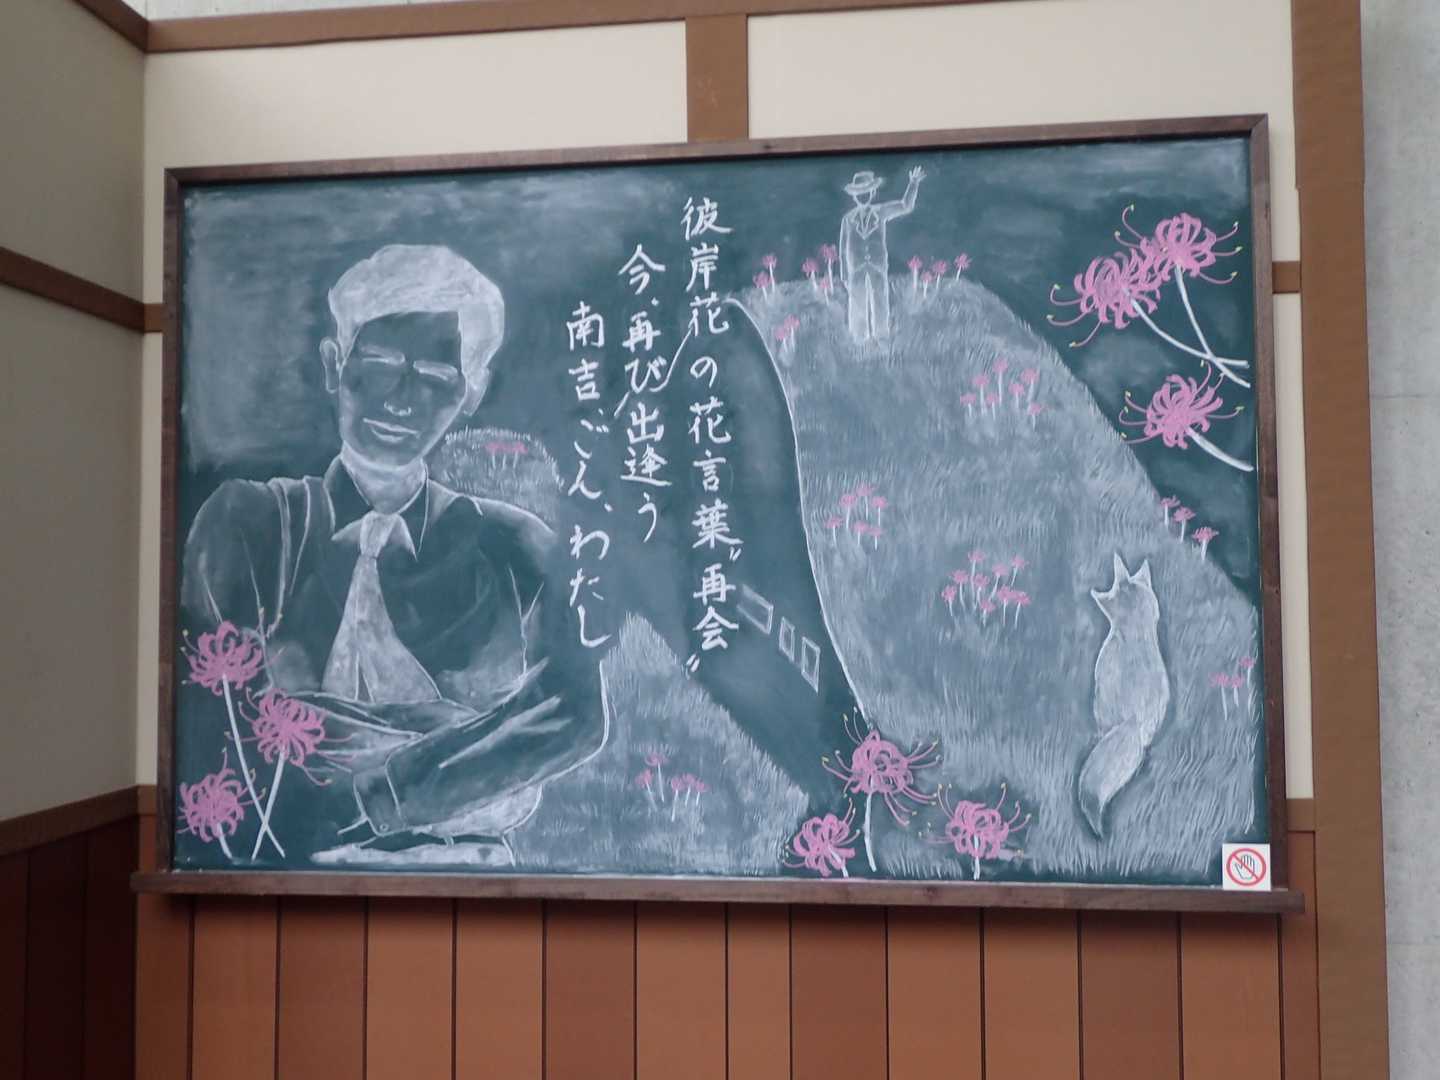 彼岸花の花言葉〝再会〟
今、再び出逢う
南吉、ごん、わたし